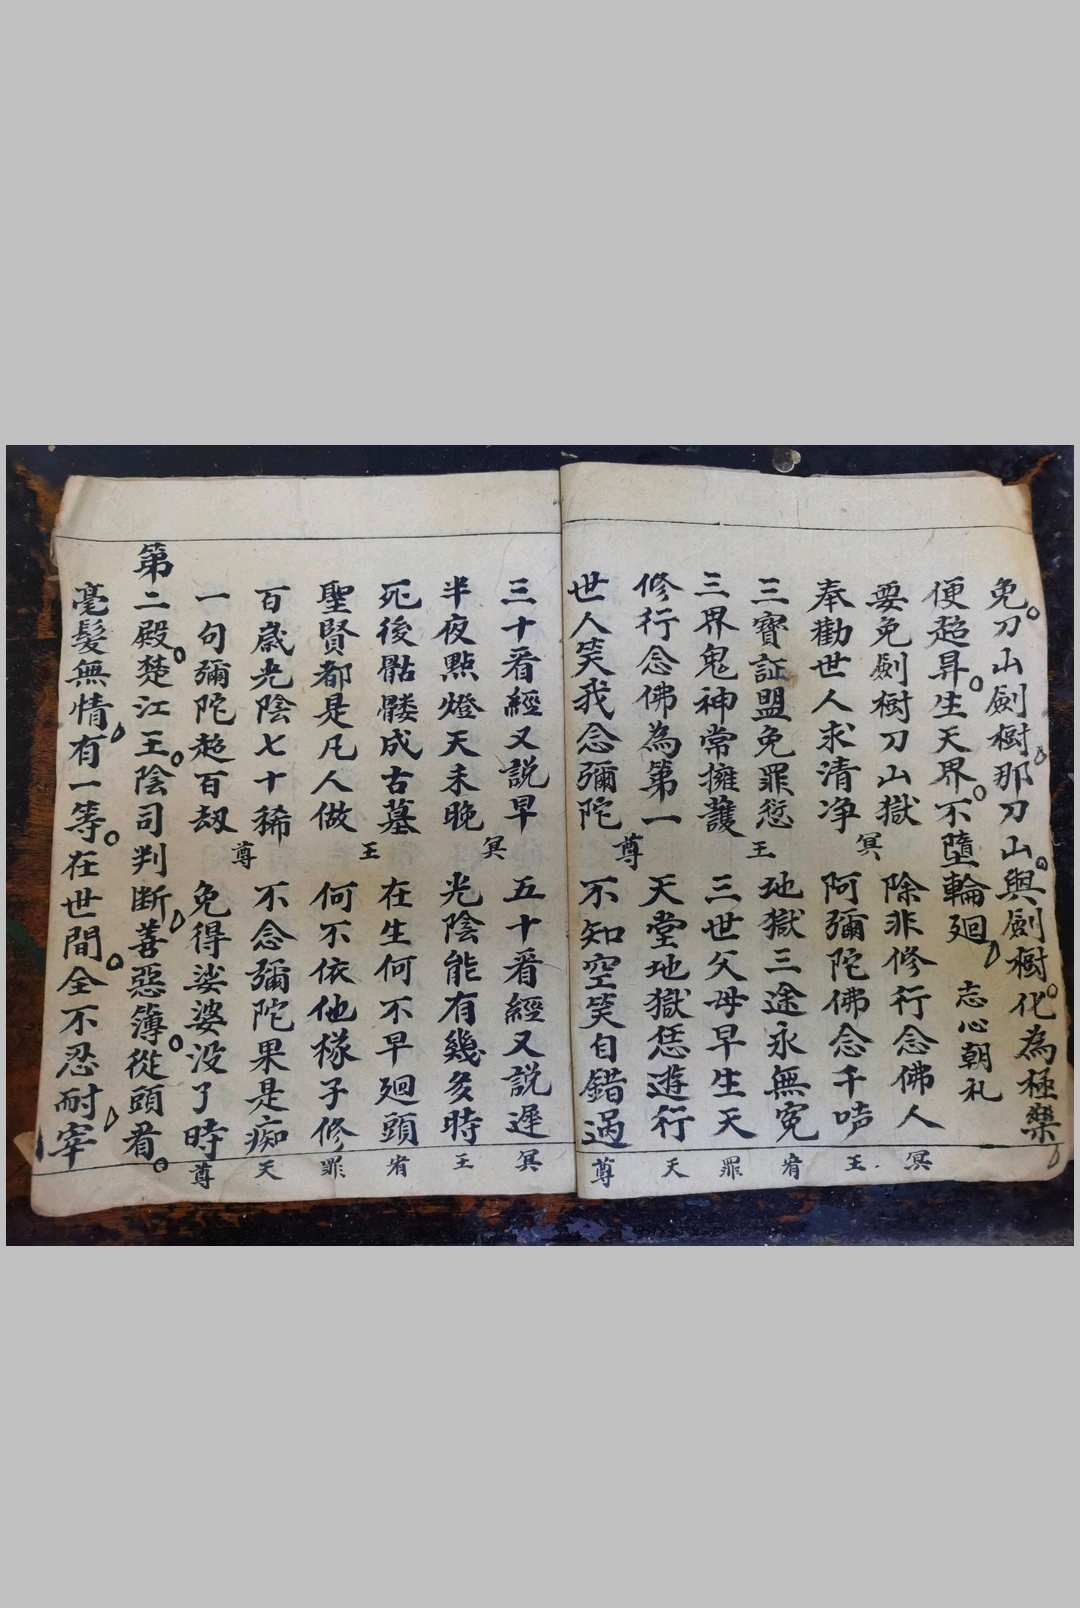 免刀山劍樹那刀山與劍樹化為極樂
便超昇生天界不墮輪廻 志心朝礼
要免劍樹刀山獄 除非修行念佛人 冥
奉勸世人求清净 冥 阿彌陀佛念千声 王
三寳証盟免罪愆 地獄三途永無寃 宥
三界鬼神常擁護 王 三世父母早生天 罪
修行念佛為第一 天堂地獄恁遊行 天
世人笑我念彌陀 尊 不知空笑自錯過 尊
三十看經又說早 五十看經又說遲 冥
半夜點燈天未晚 冥 光陰能有幾多時 王
死後骷髏成古墓 在生何不早廻頭 宥
聖賢都是凡人做 王 何不依他様子修 罪
百歲光陰七十稀 不念彌陀果是痴 天
一句彌陀超百刼 尊 免得娑婆没了時 尊
第二殿楚江王陰司判断善惡簿從頭看
毫髮無情有一等在世間全不忍耐宰